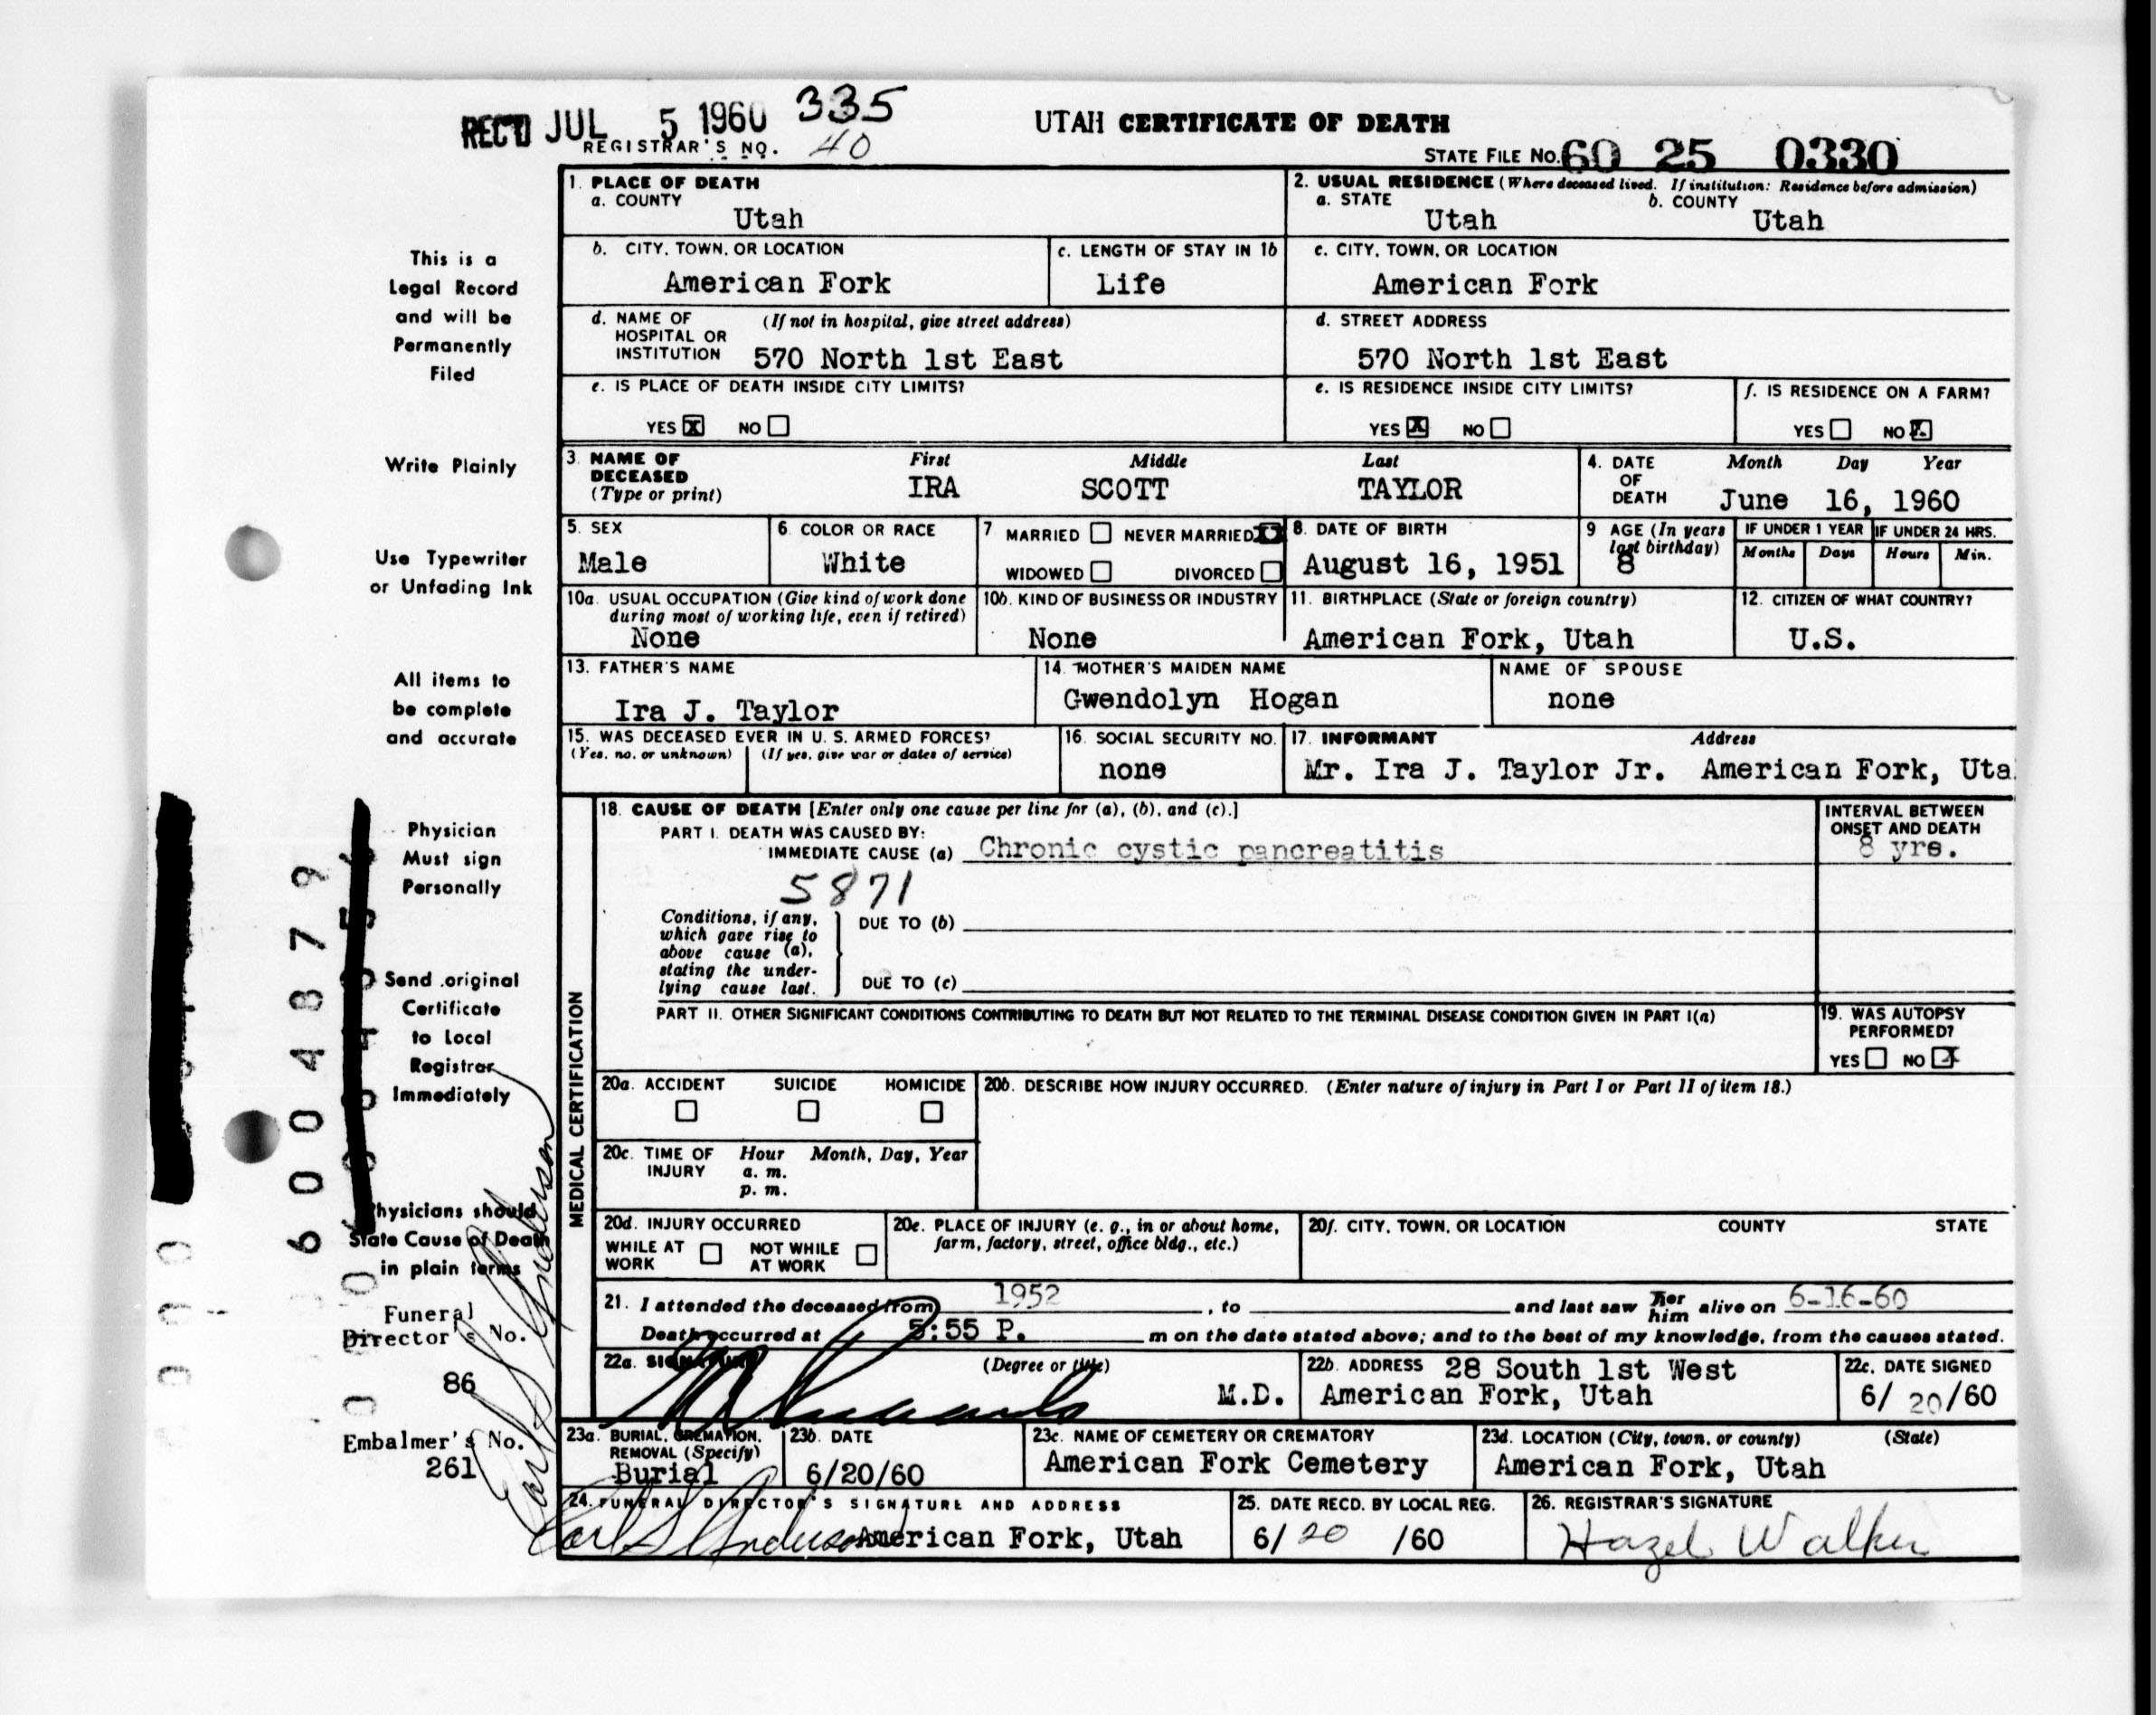 REC'D JUL 5 1960 335
REGISTRAR'S NO. 40
UTAH CERTIFICATE OF DEATH
STATE FILE NO. 60 25 0330
This is a
Legal Record
and will be
Permanently
Filed
Write Plainly
Use Typewriter
or Unfading Ink
All items to
be complete
and accurate
Physician
Must sign
Personally
Send original
Certificate
to Local
Registrar
Immediately
Physicians should
State Cause of Death
in plain terms
Funeral
Director's No.
86
Embalmer's No.
261
6004879
Earl S Anderson
1. PLACE OF DEATH
a. COUNTY
Utah
2. USUAL RESIDENCE (Where deceased lived. If institution: Residence before admission)
a. STATE b. COUNTY
Utah Utah
b. CITY, TOWN, OR LOCATION
American Fork
c. LENGTH OF STAY IN 1b
Life
c. CITY, TOWN, OR LOCATION
American Fork
d. NAME OF (If not in hospital, give street address)
HOSPITAL OR
INSTITUTION 570 North 1st East
d. STREET ADDRESS
570 North 1st East
e. IS PLACE OF DEATH INSIDE CITY LIMITS?
YES X NO
e. IS RESIDENCE INSIDE CITY LIMITS?
YES X NO
f. IS RESIDENCE ON A FARM?
YES NO X
3. NAME OF First Middle Last
DECEASED
(Type or print) IRA SCOTT TAYLOR
4. DATE Month Day Year
OF
DEATH June 16, 1960
5. SEX
Male
6. COLOR OR RACE
White
7 MARRIED NEVER MARRIED X
WIDOWED DIVORCED
8. DATE OF BIRTH
August 16, 1951
9 AGE (In years
last birthday)
8
IF UNDER 1 YEAR IF UNDER 24 HRS.
Months Days Hours Min.
10a. USUAL OCCUPATION (Give kind of work done
during most of working life, even if retired)
None
10b. KIND OF BUSINESS OR INDUSTRY
None
11. BIRTHPLACE (State or foreign country)
American Fork, Utah
12. CITIZEN OF WHAT COUNTRY?
U.S.
13. FATHER'S NAME
Ira J. Taylor
14. MOTHER'S MAIDEN NAME
Gwendolyn Hogan
NAME OF SPOUSE
none
15. WAS DECEASED EVER IN U. S. ARMED FORCES?
(Yes, no, or unknown) (If yes, give war or dates of service)
16. SOCIAL SECURITY NO.
none
17. INFORMANT Address
Mr. Ira J. Taylor Jr. American Fork, Uta
MEDICAL CERTIFICATION
18. CAUSE OF DEATH [Enter only one cause per line for (a), (b), and (c).]
PART I. DEATH WAS CAUSED BY:
IMMEDIATE CAUSE (a) Chronic cystic pancreatitis
5871
INTERVAL BETWEEN
ONSET AND DEATH
8 yrs.
Conditions, if any,
which gave rise to
above cause (a),
stating the under-
lying cause last.
DUE TO (b)
DUE TO (c)
PART II. OTHER SIGNIFICANT CONDITIONS CONTRIBUTING TO DEATH BUT NOT RELATED TO THE TERMINAL DISEASE CONDITION GIVEN IN PART I(a)
19. WAS AUTOPSY
PERFORMED?
YES NO X
20a. ACCIDENT SUICIDE HOMICIDE
20b. DESCRIBE HOW INJURY OCCURRED. (Enter nature of injury in Part I or Part II of item 18.)
20c. TIME OF Hour Month, Day, Year
INJURY a. m.
p. m.
20d. INJURY OCCURRED
WHILE AT NOT WHILE
WORK AT WORK
20e. PLACE OF INJURY (e. g., in or about home,
farm, factory, street, office bldg., etc.)
20f. CITY, TOWN, OR LOCATION COUNTY STATE
21. I attended the deceased from 1952, to and last saw her him alive on 6-16-60
Death occurred at 5:55 P. m on the date stated above; and to the best of my knowledge, from the causes stated.
22a. SIGNATURE (Degree or title)
M.D.
22b. ADDRESS 28 South 1st West
American Fork, Utah
22c. DATE SIGNED
6/20/60
23a. BURIAL, CREMATION,
REMOVAL (Specify)
Burial
23b. DATE
6/20/60
23c. NAME OF CEMETERY OR CREMATORY
American Fork Cemetery
23d. LOCATION (City, town, or county) (State)
American Fork, Utah
24. FUNERAL DIRECTOR'S SIGNATURE AND ADDRESS
Earl S Anderson American Fork, Utah
25. DATE RECD. BY LOCAL REG.
6/20/60
26. REGISTRAR'S SIGNATURE
Hazel Walker